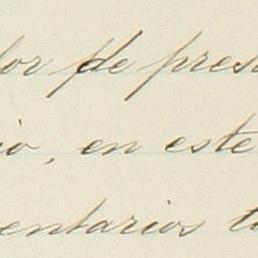 lor de pres
io, en este
entarios t